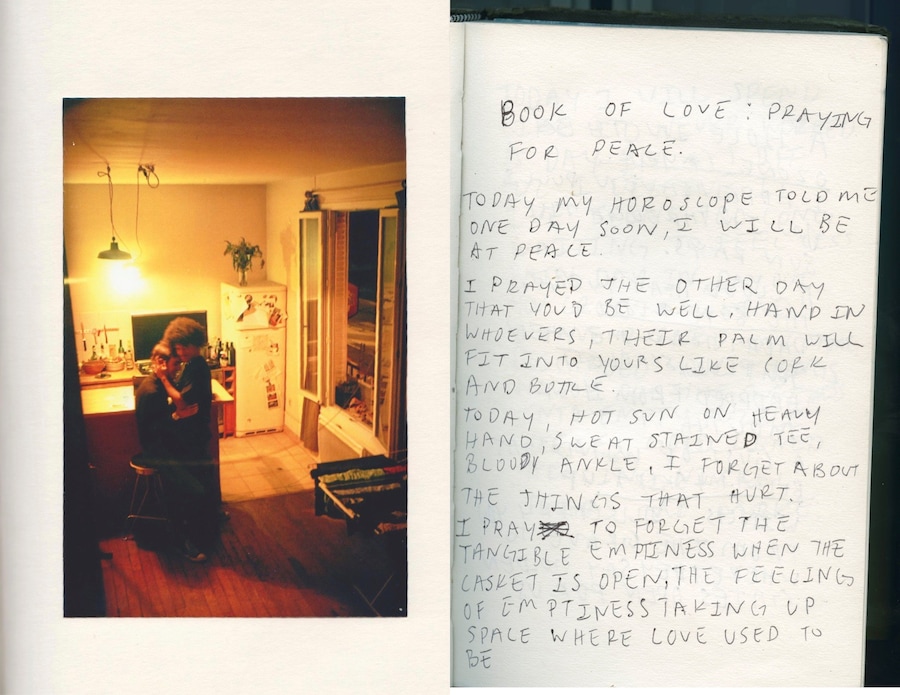 BOOK OF LOVE: PRAYING
FOR PEACE.
TODAY MY HOROSCOPE TOLD ME
ONE DAY SOON, I WILL BE
AT PEACE.
I PRAYED THE OTHER DAY
THAT YOU'D BE WELL, HAND IN
WHOEVERS, THEIR PALM WILL
FIT INTO YOURS LIKE CORK
AND BOTTLE.
TODAY, HOT SUN ON HEAVY
HAND, SWEAT STAINED TEE,
BLOODY ANKLE, I FORGET ABOUT
THE THINGS THAT HURT.
I PRAY TO FORGET THE
TANGIBLE EMPTINESS WHEN THE
CASKET IS OPEN, THE FEELINGS
OF EMPTINESS TAKING UP
SPACE WHERE LOVE USED TO
BE